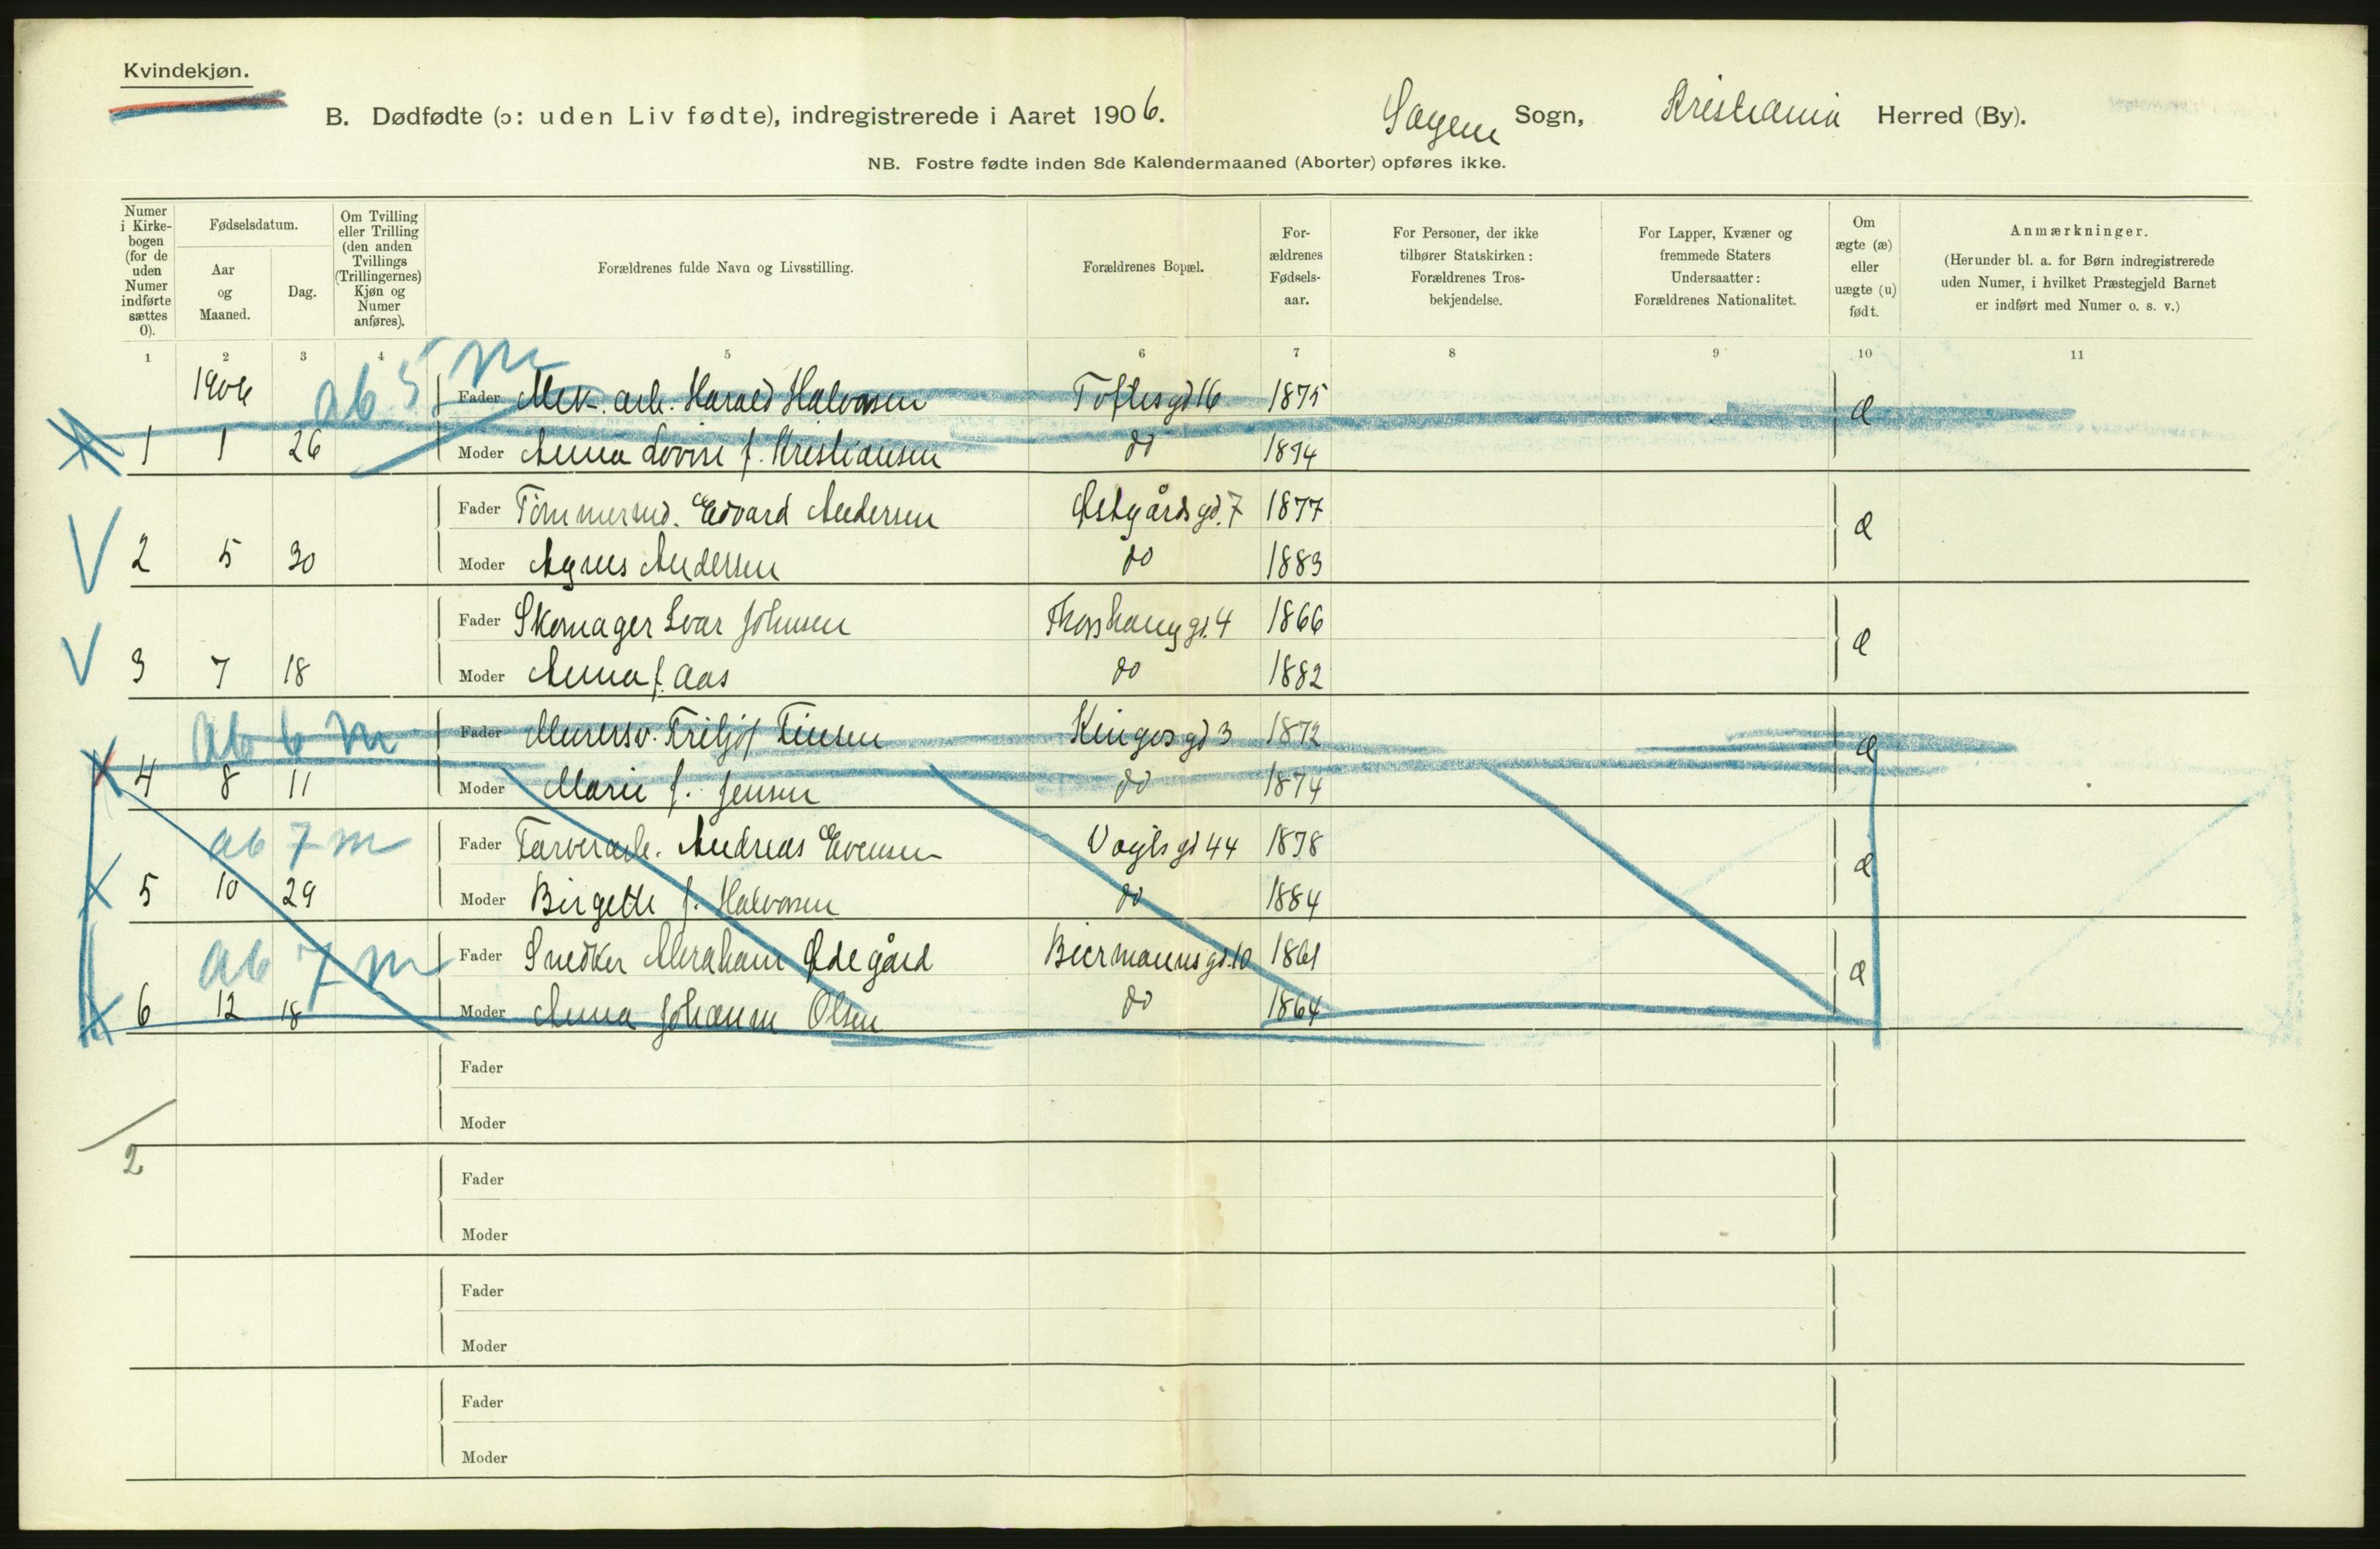 Kvindekjøn.
B. Dødfødte (ɔ: uden Liv fødte), indregistrerede i Aaret 1906. Sagene Sogn, Kristiania Herred (By).
NB. Fostre fødte inden 8de Kalendermaaned (Aborter) opføres ikke.
Numer i Kirkebogen (for de uden Numer indførte sættes 0).
Fødselsdatum.
Aar og Maaned.
Dag.
Om Tvilling eller Trilling (den anden Tvillings (Trillingernes) Kjøn og Numer anføres).
Forældrenes fulde Navn og Livsstilling.
Forældrenes Bopæl.
Forældrenes Fødselsaar.
For Personer, der ikke tilhører Statskirken: Forældrenes Trosbekjendelse.
For Lapper, Kvæner og fremmede Staters Undersaatter: Forældrenes Nationalitet.
Om ægte (æ) eller uægte (u) født.
Anmærkninger.
(Herunder bl. a. for Børn indregistrerede uden Numer, i hvilket Præstegjeld Barnet er indført med Numer o. s. v.)
1 2 3 4 5 6 7 8 9 10 11
1906 ab 5 m
Fader Mek. arb. Harald Halvorsen Toftesgd 16 1875 æ
1 1 26 Moder Anna Lovise f. Kristiansen do 1874
Fader Tømmersnd. Edvard Andersen Østgårdsgd. 7 1877 æ
2 5 30 Moder Agnes Andersen do 1883
Fader Skomager Ivar Johnsen Thorshauggd. 4 1866 æ
3 7 18 Moder Anna f. Aas do 1882
ab 6 m
Fader Murersv. Fritjof Finsen Kingosgd 3 1872 æ
4 8 11 Moder Marie f. Jensen do 1874
ab 7 m
Fader Farverarb. Andreas Evensen Vogtsgd 44 1878 æ
5 10 29 Moder Birgette f. Halvorsen do 1884
ab 7 m
Fader Snedker Abraham Ødegård Biermannsgd. 10 1861 æ
6 12 18 Moder Anna Johanne Olsen do 1864
Fader
Moder
2
Fader
Moder
Fader
Moder
Fader
Moder